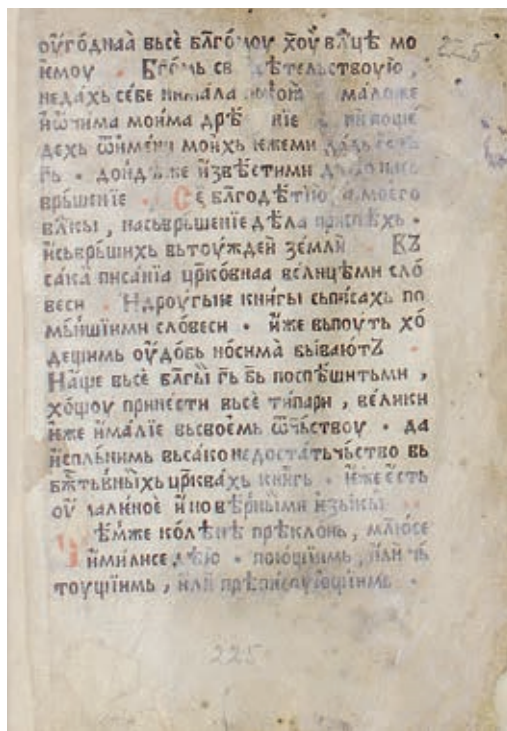 оуго́днаа вьсѐ бл҃го́моу хоу҃ вл҃цѣ мо
ѥмоу . Бг҃о́мь св ѣтельствоую ,
не да́хь се́бе ни мала маложе
и҆ѡ҆чи́ма мои́ма дрѣ ніе
дехь ѿимѣ́ни мои́хь ꙗже ми
гь . донд ѣже и҆звѣсти ми
врьше́нїе . Сь бл҃годѣ́тїю, а моего
вл҃кы , насьврьше́нїе дѣ́ла приспѣ́хь .
и҆сьврьши́хь вьтоу́ждей зе́мли Въ
сака̀ писа́нїа цр҃ко́внаа вели́цѣми сло́
веси . И҆ дроугы́ѥ кни́гы сьпи́сахь по
мь́ншїими сло́веси . и҆же вьпоу́ть хо́
дещимь оу҆до́бь но́сима быва́ютъ
На́ше вьсѐ бл҃гы́и гь҃ бь҃ поспѣши́ть ми ,
хо́щоу прине́сти вьсѐ ти́пари , вели́ки
ѥ҆же и҆ма́лїе вьсвое́мь ѿ҆ч҃ьствоу . да
и҆спль́нимь вьса́ко недоста́тьчьство вь
бж҃ть́вны́ихь цр҃ква́хь кни́гь . ꙗ҆же е҆́сть
оу҆ маликноѐ и҆но вѣ́рными ѥ҆зы́кы
ѣ́мже колѣ́нѣ прѣкло́нь , млю́се
и҆ ми́ли се дѣю . пою́щїимь , и҆ли чь
тоу́щїимь , и҆ли прѣписоу́ющїимь .
225
225